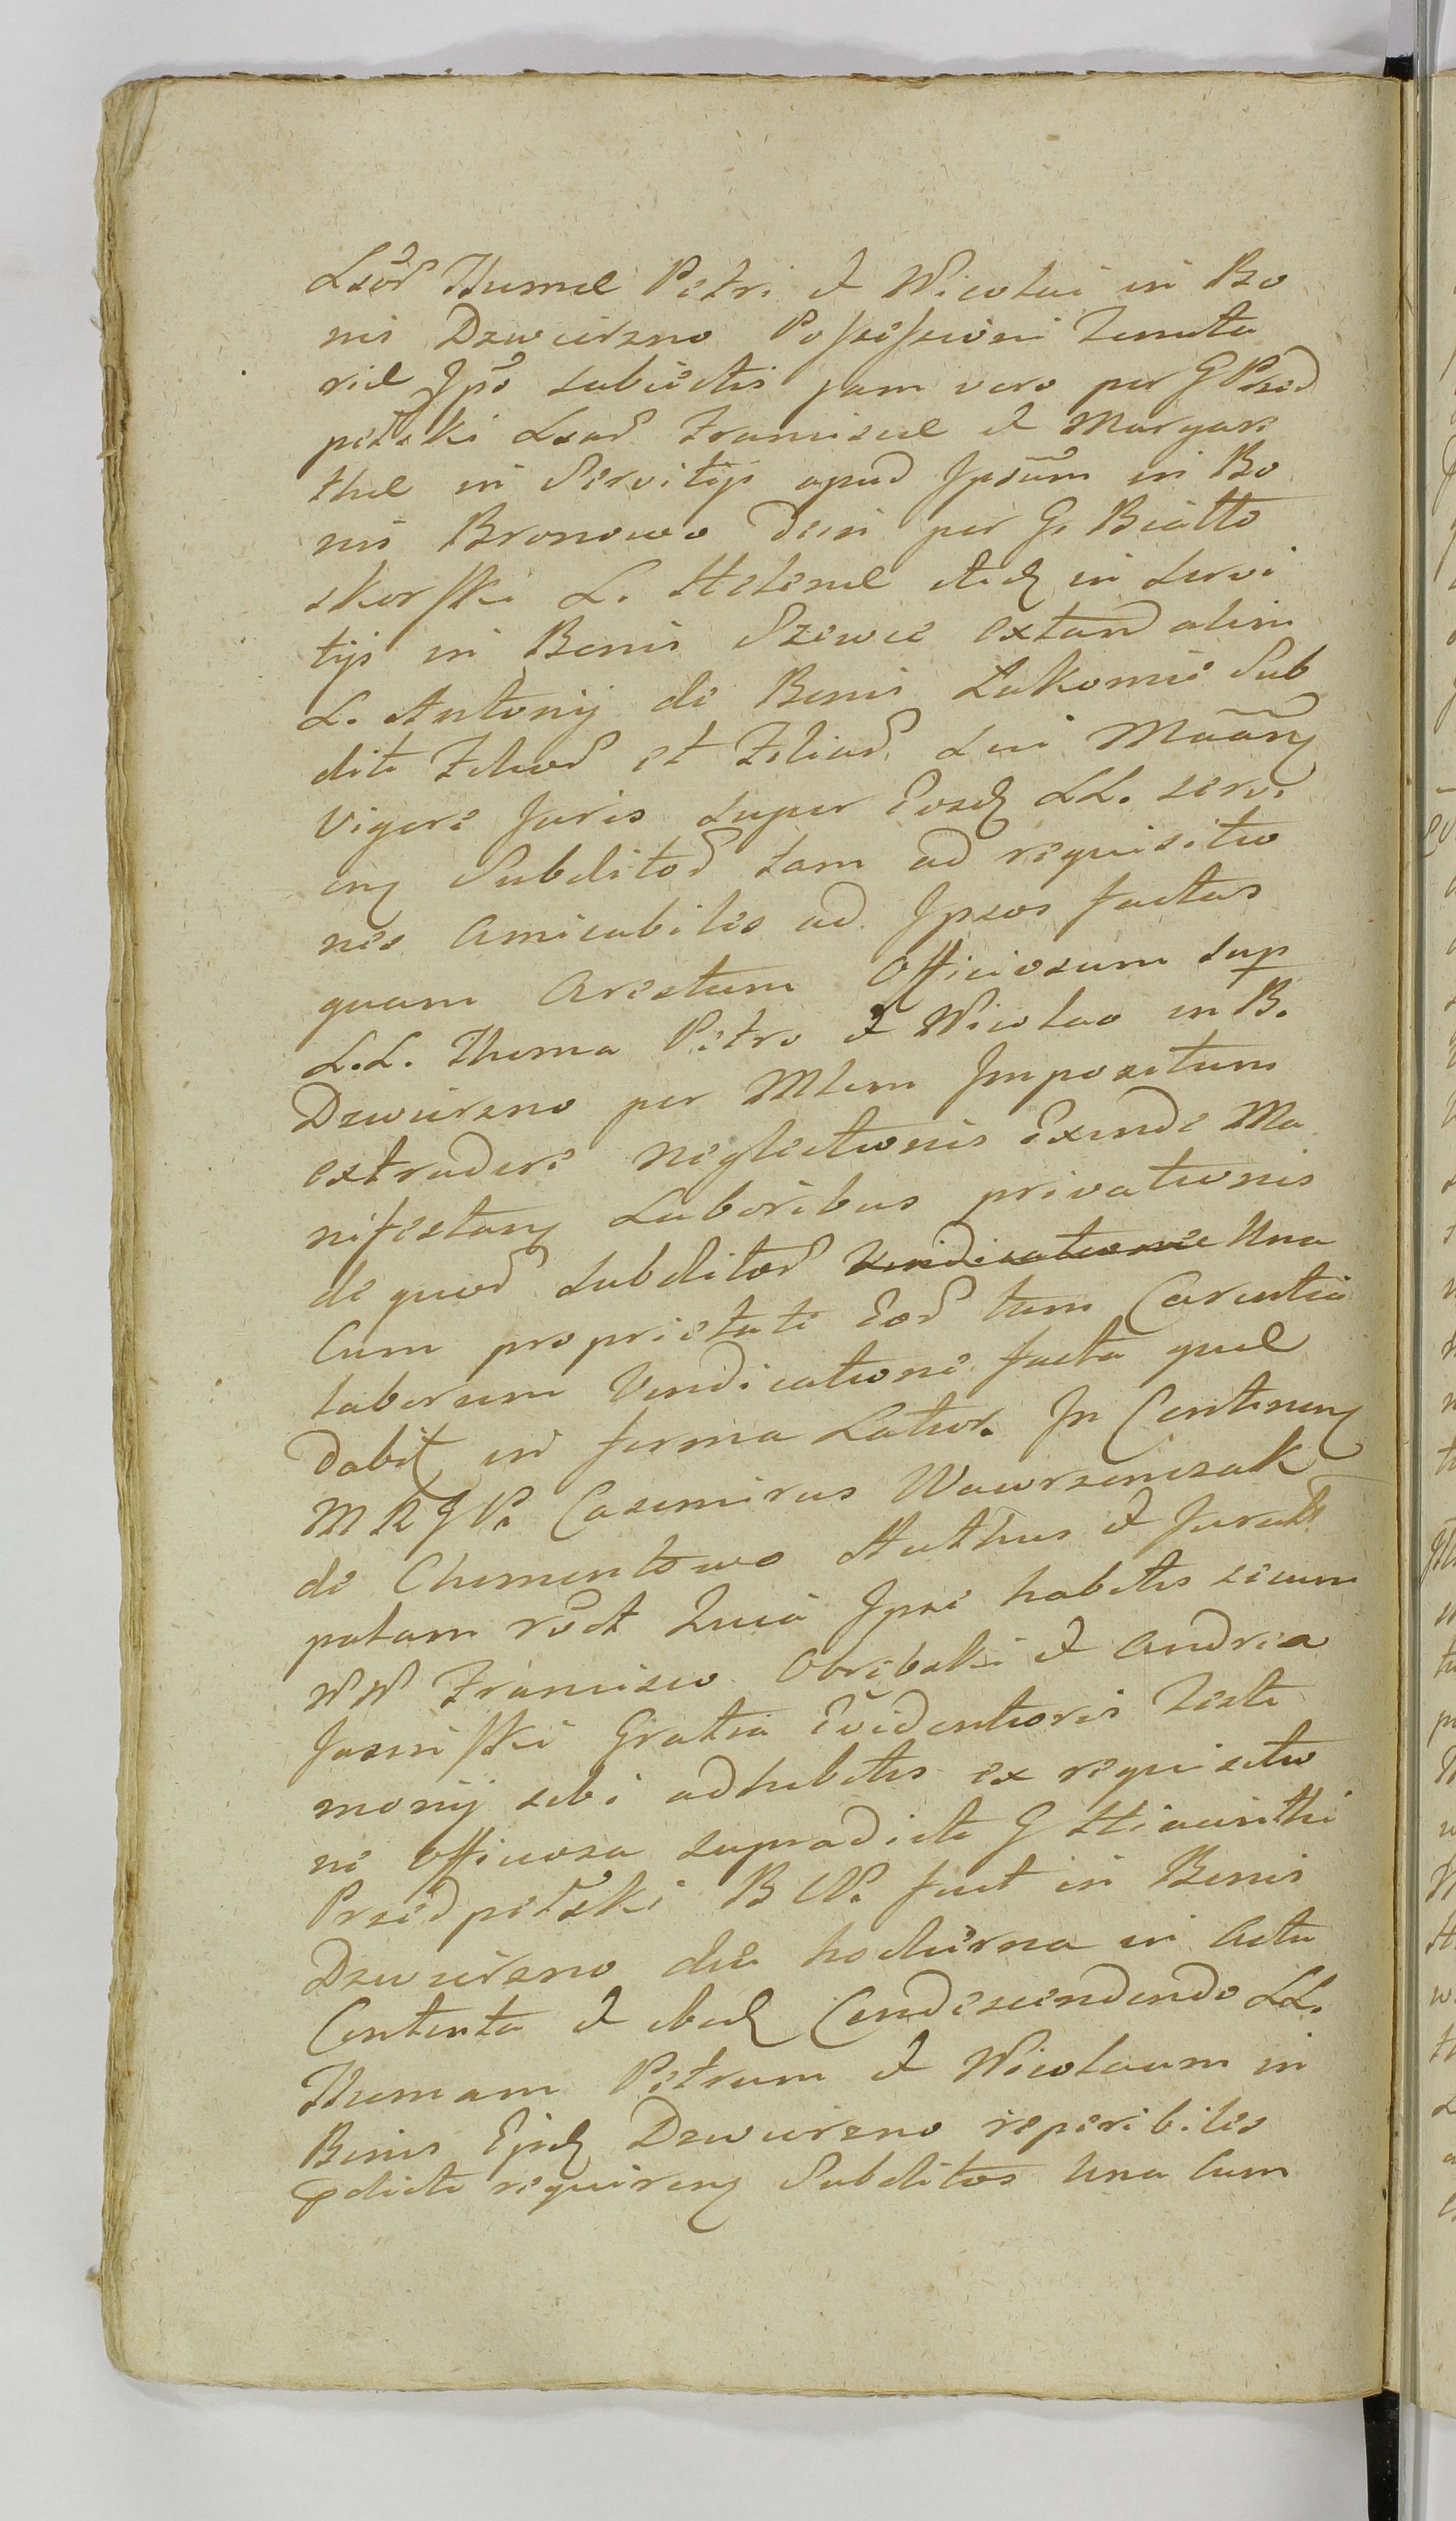 Lsör Thomæ Petri et Nicolai in Bo
nis Dzwierzno Possessioni Tenuta
riæ Ipso subiectis jam vero per G Przed
pełski Lsar Franciscæ et Margare
thæ in Servitijs apud Ipsum in Bo
nis Bronowo dein per G. Biatto
skorski L. Helenæ itid in servi
tijs in Bonis Szewce extand alini
L. Antonij de Bonis Łakomie Sub
diti Filior et Filiar sui
Vigore Juris super Eosd LL. servi
Subditor tam ad requisitio
nes Amicabiles ad Ipsos factas
quam Arestum Officiosum sup
L.L. Thoma Petro et Nicolao in B.
Dzwierzno per Mlem Impositum
extradere neglectionis Exinde Ma
nifestaq Laboribus privationis
de quor subditor vindicatione Una
Cum proprietate Eor tum Carentia
laborum Vindicatione facta quæ
dabit in forma Latior. In Continen
M R J P. Casimirus Wawrzeniczak
de Chomentowo Authus et Jurat
palam rec̃t Quia Ipse habitis secum
NN Francisco Obrebski et Andrea
Jasinski Gratia Evidentioris Testi
monij sibi adhibitis ex requisitio
ne officiosa supradicti G Hiacinthi
Przedpełski B C P. fuit in Bonis
Dzwierzno die hodierna in Actu
Contenta et ibid Condescendendo LL.
Thomam Petrum et Nicolaum in
Bonis Ejsd Dzwierzno reperibiles
pdicti requiren Subditos Una Cum